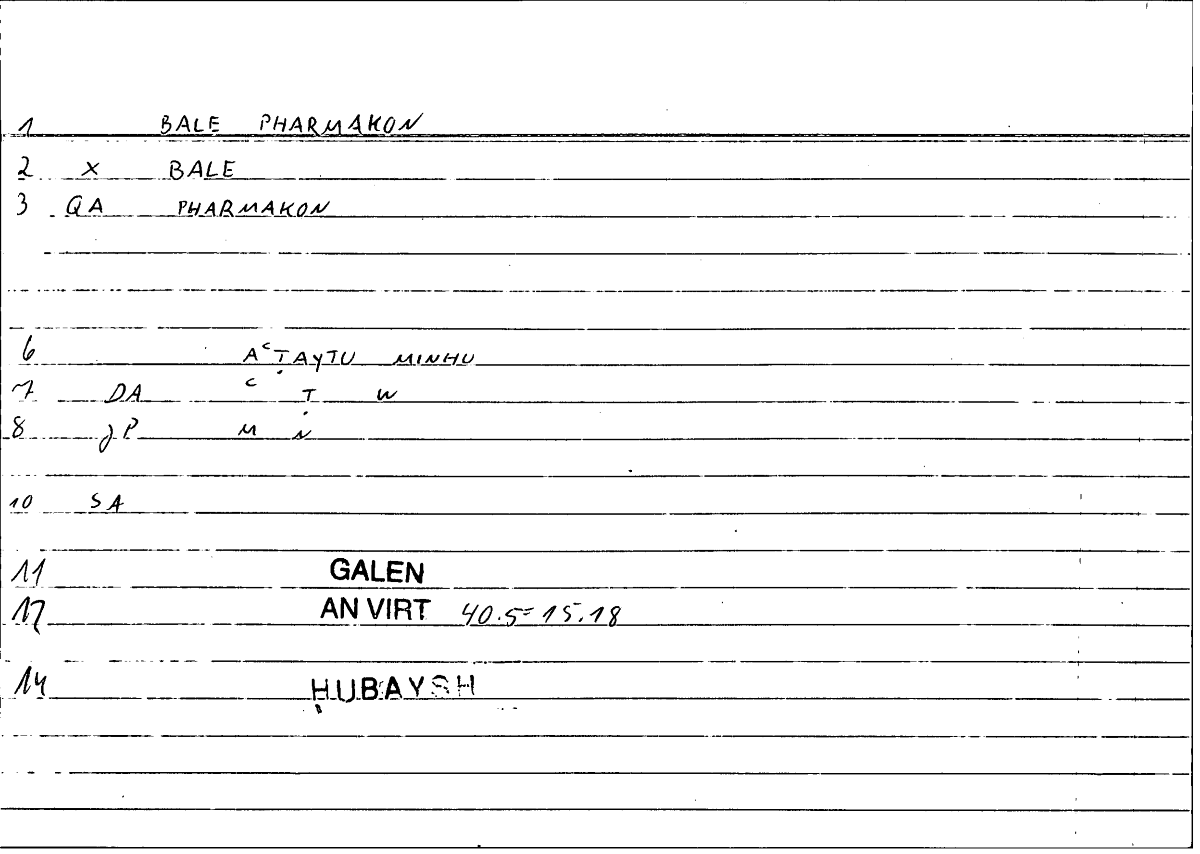 1 BALE PHARMAKON
2 X BALE
3 QA PHARMAKON
6 AʿṬAYTU MINHU
7 DA ʿ Ṭ W
8 JP M N
10 SA
11 GALEN
12 AN VIRT 40.5=15.18
14 ḤUBAYSH